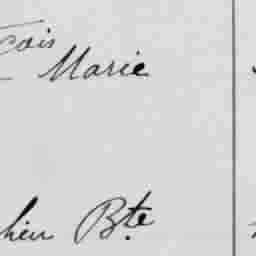 çois
Marie
hieu Bte